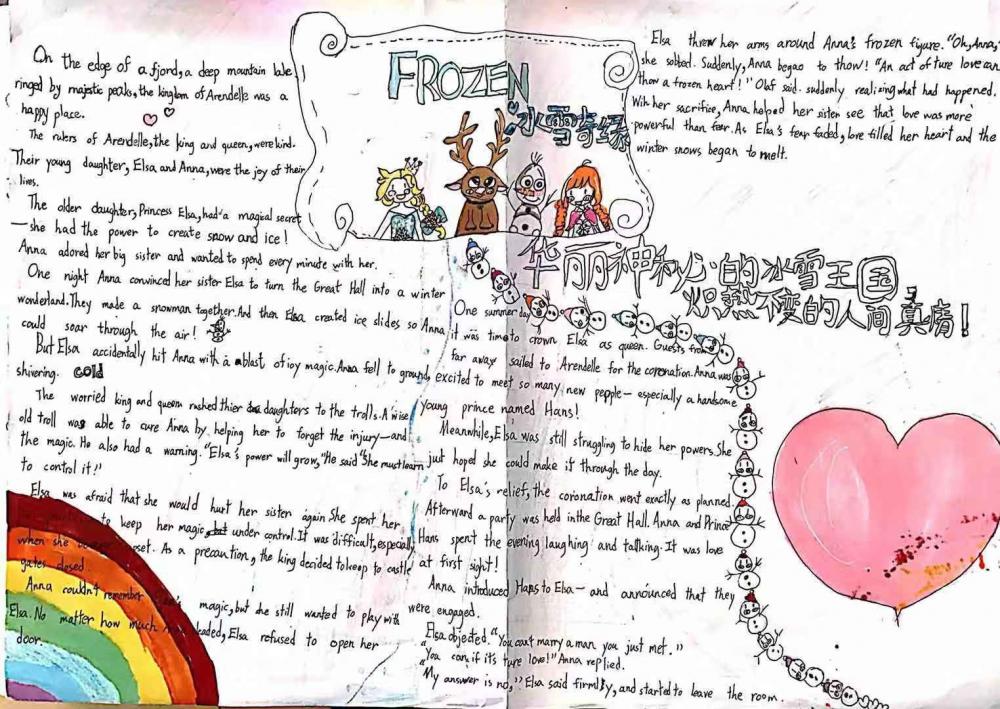 FROZEN
冰雪奇缘
On the edge of a fjord, a deep mountain lake
ringed by majestic peaks, the kingdom of Arendelle was a
happy place.
The rulers of Arendelle, the king and queen, were kind.
Their young daughter, Elsa and Anna, were the joy of their
lives.
The older daughter, Princess Elsa, had a magical secret
—she had the power to create snow and ice!
Anna adored her big sister and wanted to spend every minute with her.
One night Anna convinced her sister Elsa to turn the Great Hall into a winter
wonderland. They made a snowman together. And then Elsa created ice slides so Anna
could soar through the air!
But Elsa accidentally hit Anna with a blast of icy magic. Anna fell to ground,
shivering. cold
The worried king and queen rushed thier daughters to the trolls. A wise
old troll was able to cure Anna by helping her to forget the injury—and
the magic. He also had a warning. "Elsa's power will grow," He said "She must learn
to control it!"
Elsa was afraid that she would hurt her sister again. She spent her
to keep her magic under control. It was difficult, especially
when she upset. As a precaution, the king decided to keep to castle
gates closed.
Anna couldn't remember magic, but she still wanted to play with
Elsa. No matter how much pleaded, Elsa refused to open her
door.
华丽神秘的冰雪王国
炽热不变的人间真情!
One summer day
it was time to crown Elsa as queen. Guests from
far away sailed to Arendelle for the coronation. Anna was
excited to meet so many new people— especially a handsome
young prince named Hans!
Meanwhile, Elsa was still struggling to hide her powers. She
just hoped she could make it through the day.
To Elsa's relief, the coronation went exactly as planned.
Afterward a party was held in the Great Hall. Anna and Prince
Hans spent the evening laughing and talking. It was love
at first sight!
Anna introduced Hans to Elsa— and announced that they
were engaged.
Elsa objected. "You can't marry a man you just met."
"You can, if it's ture love!" Anna replied.
"My answer is no," Elsa said firmly, and started to leave the room.
Elsa threw her arms around Anna's frozen figure. "Oh, Anna,"
she sobbed. Suddenly, Anna began to thow! "An act of ture love can
thow a frozen heart!" Olaf said. suddenly realizing what had happened.
With her sacrifice, Anna helped her sister see that love was more
powerful than fear. As Elsa's fear faded, love filled her heart and the
winter snows began to melt.